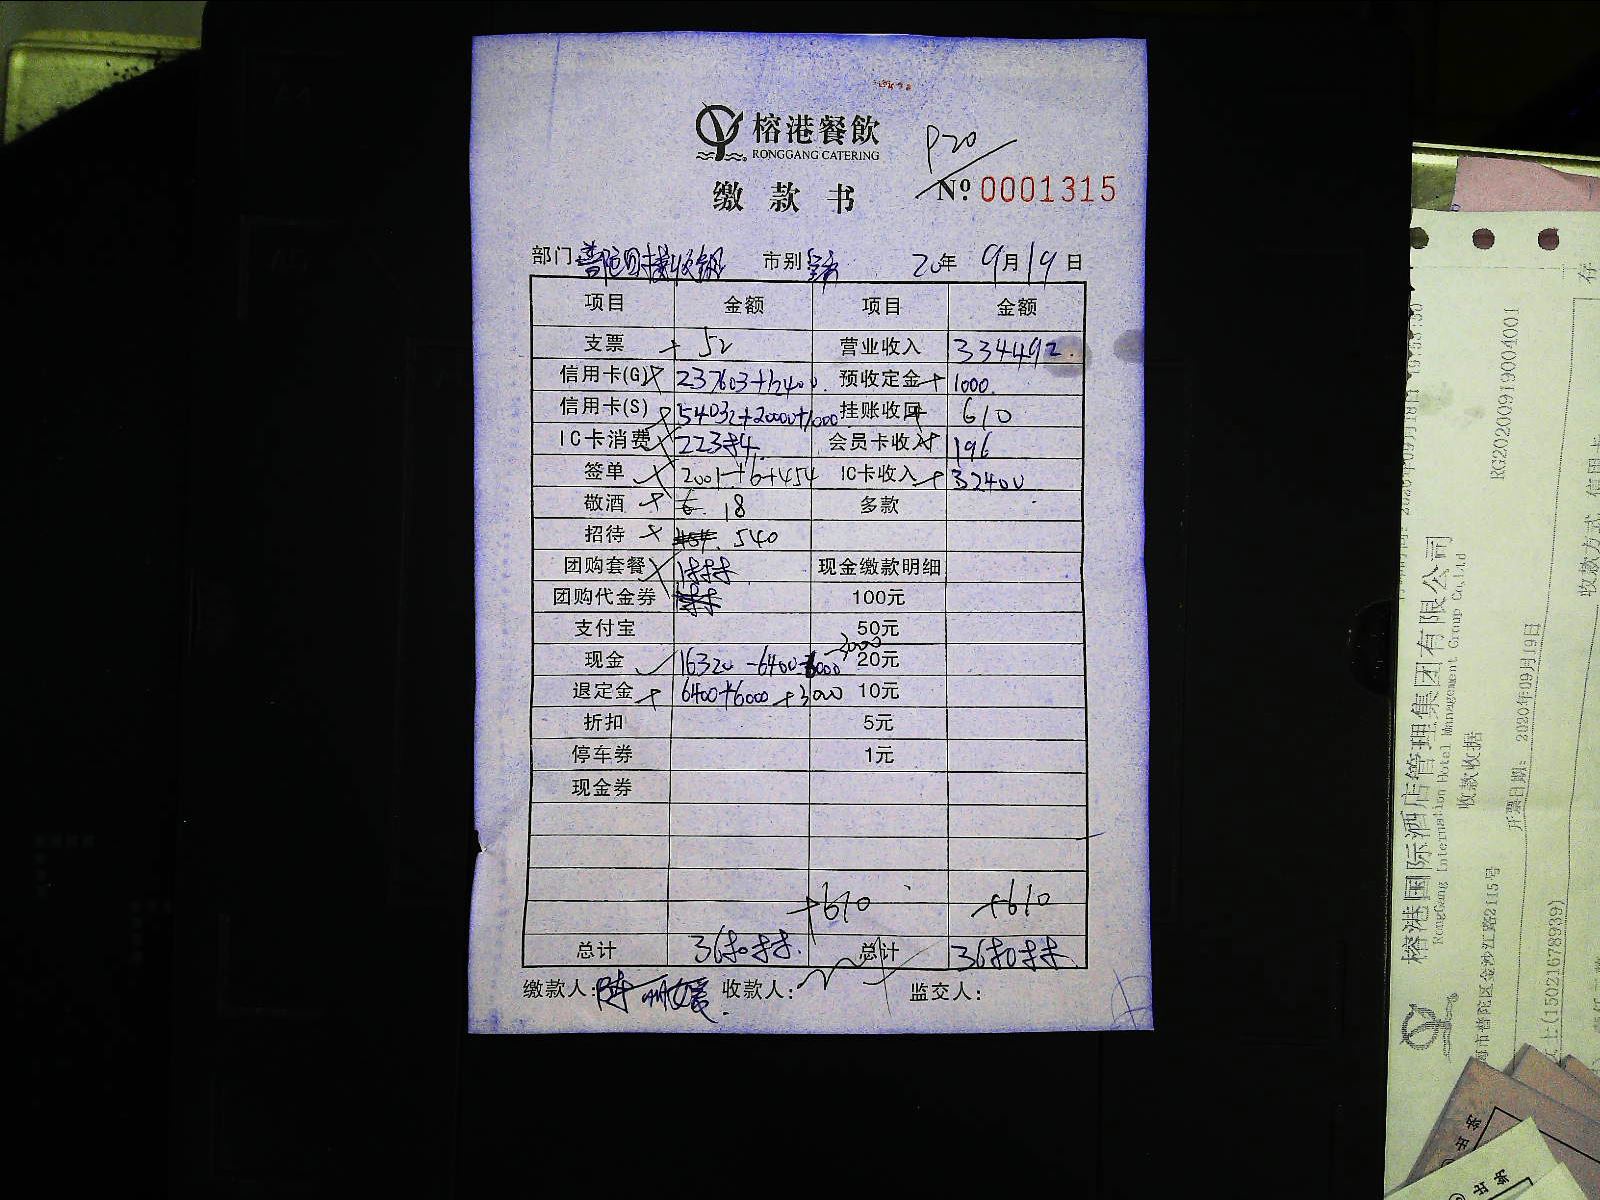 榕港餐飲
RONGGANG CATERING
P20
缴款书
№ 0001315
部门 市别 20年 9月19日
项目 金额 项目 金额
支票 52 营业收入 334492.
信用卡(G) 237603+12400. 预收定金 1000.
信用卡(S) 54032+20000+1000 挂账收回 610
IC卡消费 会员卡收入 196
签单 2001+6+454 IC卡收入 32400
敬酒 18 多款
招待 540
团购套餐 现金缴款明细
团购代金券 100元
支付宝 50元
现金 16320-6400-6000-3000 20元
退定金 6400+6000+3000 10元
折扣 5元
停车券 1元
现金券
+610 +610
总计 总计
缴款人: 收款人: 监交人:
榕港国际酒店管理集团有限公司
RongGang Internation Hotel Management Group Co.,Ltd
收款收据
RG20200919004001
开票日期: 2020年09月19日
市普陀区金沙江路2115号
女士(15021678939)
收款方式 信用卡
存